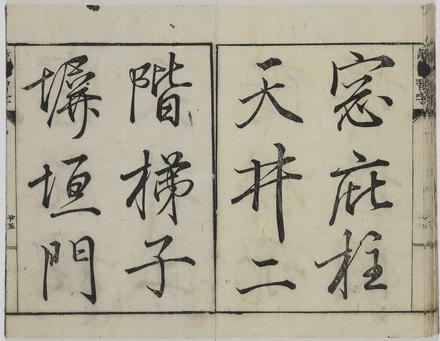 窓庇柱
天井二
階梯子
塀垣門
廿五